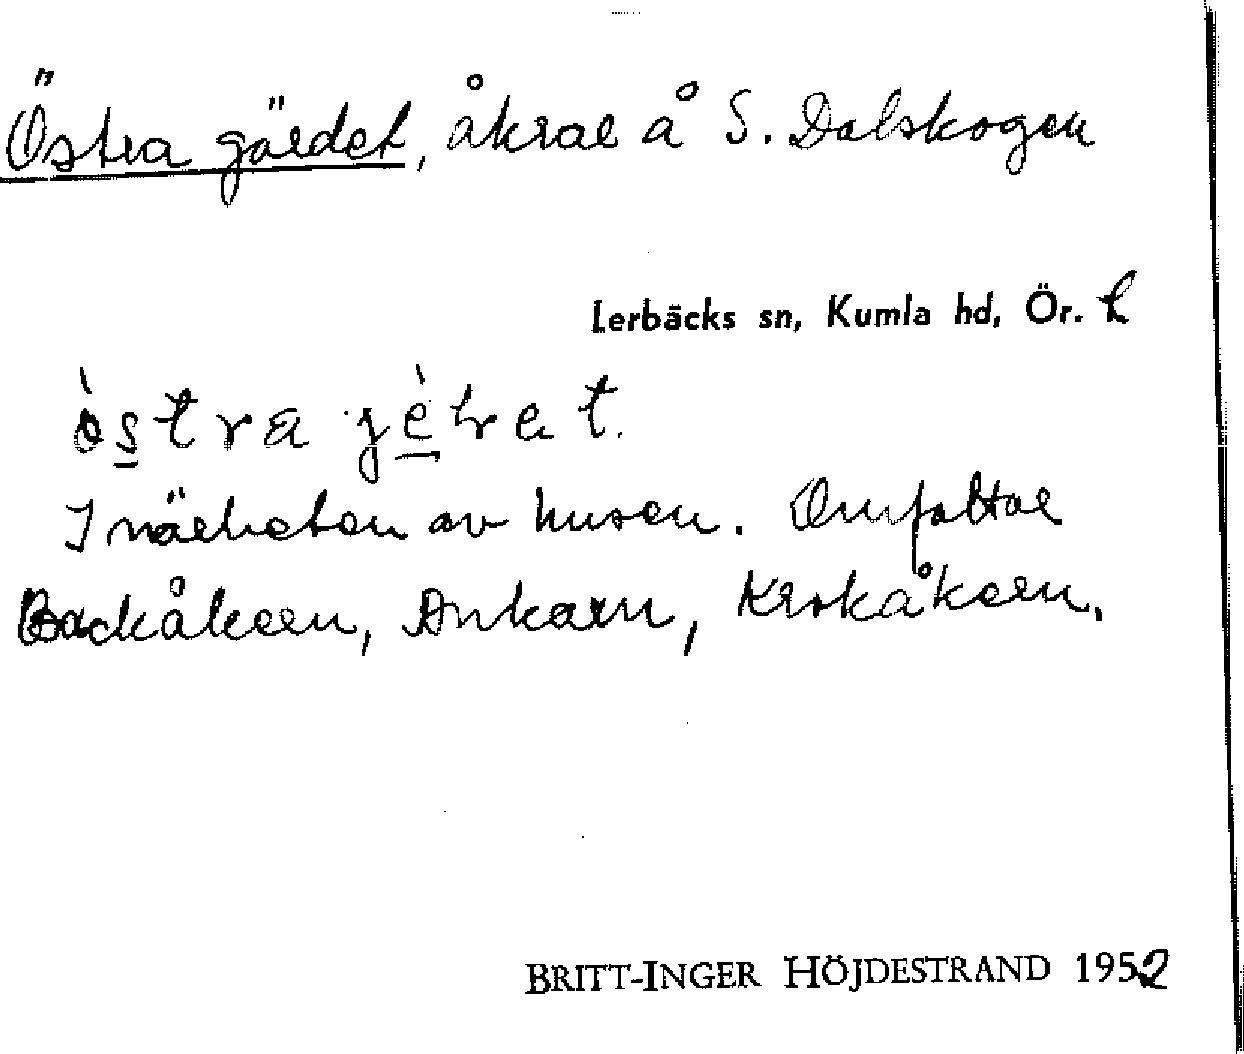 Östra gärdet, åkrar å S. Dalskogen
Lerbäcks sn, Kumla hd, Ör. L
I närheten av husen. Omfattar
Backåkern, Ankarn, Krokåkern.
BRITT-INGER HÖJDESTRAND 1952